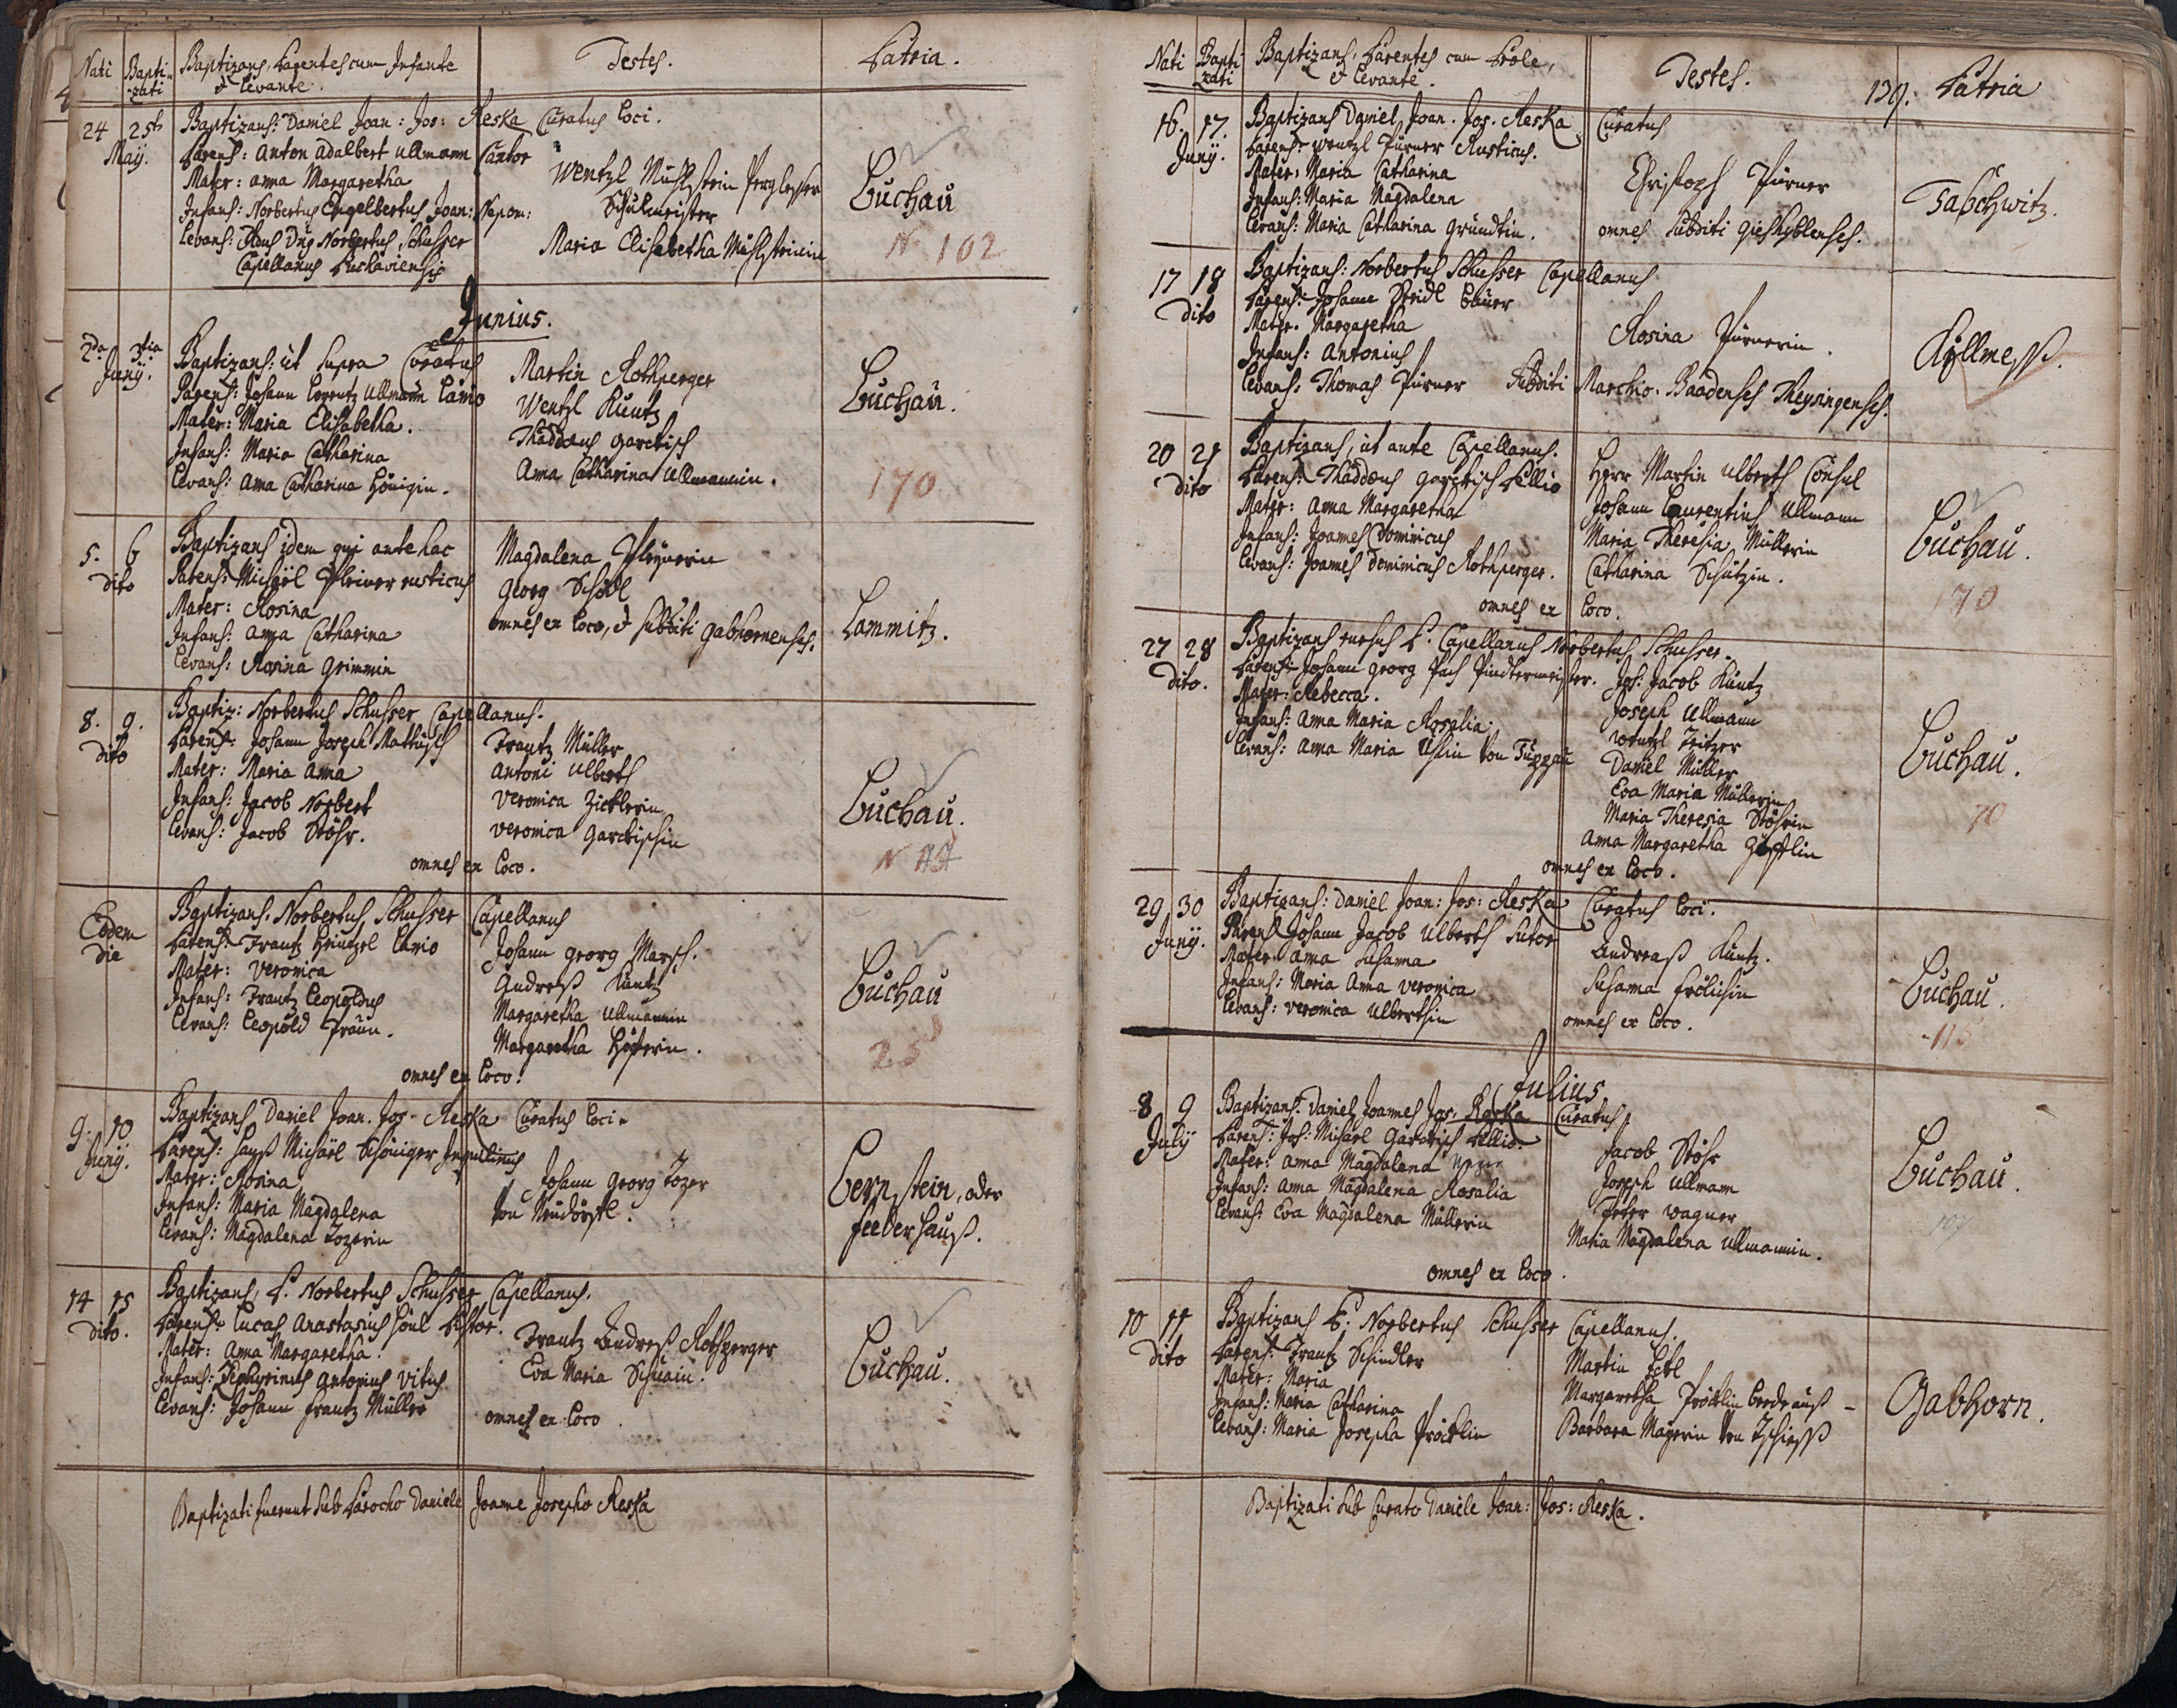 Nati Bapti- Baptizans, Parentes cum Infante Testes. Patria.
zati & Levante.
24 25ta Baptizans: Daniel Joan: Jos: Reska Curatus Loci.
May. Parens: Anton Adalbert Ullmann Cantor
Mater: Anna Margaretha
Infans: Norbertus Engelbertus Joan: Nepom:
Levans: Dnus Norbertus Schusser
Capellanus Luchaviensis
Wentzl Mühlstein
Schulmeister
Maria Elisabetha Mühlsteinin
Luchau
N 102
Junius.
2da 3tia Baptizans: ut supra Curatus
Juny. Parens: Johann Lorentz Ullmann Lanio
Mater: Maria Elisabetha.
Infans: Maria Catharina
Levans: Anna Catharina Hönigin.
Martin Rothperger
Wentzl Küntz
Thaddæus Garckisch
Anna Catharina Ullmannin.
Luchau.
170
5. 6 Baptizans idem qui antehac
dito Parens: Michäel Pleiner rusticus
Mater: Rosina
Infans: Anna Catharina
Levans: Rosina Grimmin
Magdalena Pleynerin
Georg Schödl
omnes ex Loco, & subditi Gabhornenses.
Lammitz.
8. 9. Baptiz: Norbertus Schusser Capellanus.
dito Parens: Johann Joseph Mattusch
Mater: Maria Anna
Infans: Jacob Norbert
Levans: Jacob Stöhr.
Frantz Müller
Antoni Ulberth
Veronica Zicklerin
Veronica Garckischin
omnes ex Loco.
Luchau.
Eodem Baptizans. Norbertus Schusser Capellanus
die Parens: Frantz Heintzel Lanio
Mater: Veronica
Infans: Frantz Leopoldus
Levans: Leopold Fraun.
Johann Georg Marsch.
Andreß Küntz
Margaretha Ullmannin
Margaretha Höferin.
omnes ex Loco.
Luchau
25
9. 10 Baptizans Daniel Joan. Jos. Reska Curatus Loci.
Juny. Parens: Hanß Michäel Schöniger Inquilinus
Mater: Rosina
Infans: Maria Magdalena
Levans: Magdalena Tozerin
Johann Georg Tozer
von Neudörffl.
Bernstein, oder
feeberhauß.
14 15 Baptizans, P. Norbertus Schusser Capellanus.
dito. Parens: Lucas Anastasius Höül Pistor.
Mater: Anna Margaretha.
Infans: Zephyrinus Antonius Vitus
Levans: Johann Frantz Müller
Frantz Andreß Rothperger
Eva Maria
omnes ex Loco.
Luchau.
Baptizati fuerunt sub Parocho Daniele Joanne Josepho Reska
Nati Bapti Baptizans, Parentes cum Prole, Testes. 139. Patria
zati & Levante.
16. 17. Baptizans Daniel Joan. Jos. Reska Curatus
Juny. Parens: Wentzl Pürner Rusticus.
Mater: Maria Catharina
Infans: Maria Magdalena
Levans: Maria Catharina Gründtin.
Christoph Pürner
omnes subditi Gieshyblenses.
Taschwitz.
17 18 Baptizans: Norbertus Schusser Capellanus.
dito Parens: Johann Seidl Bauer
Mater. Margaretha
Infans: Antonius
Levans: Thomas Pürner Subditi Marchio. Baadenses Theysingenses.
Rosina Pürnerin.
Kollmeß.
20 21 Baptizans, ut ante Capellanus.
dito Parens: Thaddæus Garckisch Pellio
Mater: Anna Margaretha
Infans: Joannes Dominicus
Levans: Joannes Dominicus Rothperger.
Herr Martin Ulberth Consul
Johann Laurentius Ullmann
Maria Theresia Müllerin
Catharina Schützin.
omnes ex Loco.
Luchau.
170
27 28 Baptizans rursus P. Capellanus Norbertus Schusser.
dito. Parens: Johann Georg Pach Pindtermeister.
Mater: Rebecca.
Infans: Anna Maria Rosalia.
Levans: Anna Maria von Tuppau
Joh: Jacob Küntz
Joseph Ullmann
Wentzl Tritzer
Daniel Müller
Eva Maria Müllerin
Maria Theresia Stöhrin
Anna Margaretha
omnes ex Loco.
Luchau.
70
29 30 Baptizans: Daniel Joan: Jos: Reska Curatus Loci.
Juny. Parens Johann Jacob Ulberth Sutor
Mater: Anna Susanna
Infans: Maria Anna Veronica
Levans: Veronica Ulberthin
Andreaß Küntz.
Susanna Frölichin
omnes ex Loco.
Luchau.
115
Julius
8 9 Baptizans: Daniel Joannes Jos. Reska Curatus.
July Parens: Joh: Michael Garckisch Pellio.
Mater: Anna Magdalena
Infans: Anna Magdalena Rosalia
Levans: Eva Magdalena Müllerin
Jacob Stöhr
Joseph Ullmann
Peter Wagner
Maria Magdalena Ullmannin.
omnes ex Loco.
Luchau.
10 11 Baptizans P. Norbertus Schusser Capellanus.
dito Parens: Frantz Schindler
Mater: Maria
Infans: Maria Catharina
Levans: Maria Josepha Pröcklin
Martin Eckl
Margaretha Pröcklin beede auß -
Barbara Mayerin von
Gabhorn.
Baptizati sub Curato Daniele Joan: Jos: Reska.